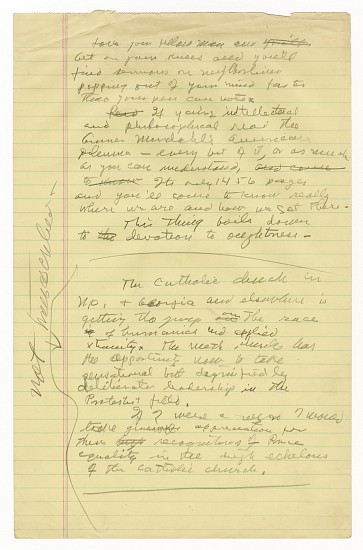 Love your fellow man and you'll
Get on your knees and you'll
find sermons on neighborliness
popping out of your mind faster
than your pen can
If you're intellectual
and philosophical read the
Gunnar Myrdahl's American
Dilemma — every bit of it, or as much
as you can understand, and come
to know Its only 1456 pages
and you'll come to know really
where we are and how we got there.
This thing boils down
to the devotion to oughtness —
not handsomeness
The Catholic church in
N.O. + Georgia and elsewhere is
getting the jump in the race
of humanics and applied
xtianity. The Meth church has
the opportunity now to take
sensational but dignified by
deliberate leadership in the
Protestant field.
If I were a negro I would
take appreciation for
their high recognition of
equality in the high echelons
of the Catholic church.